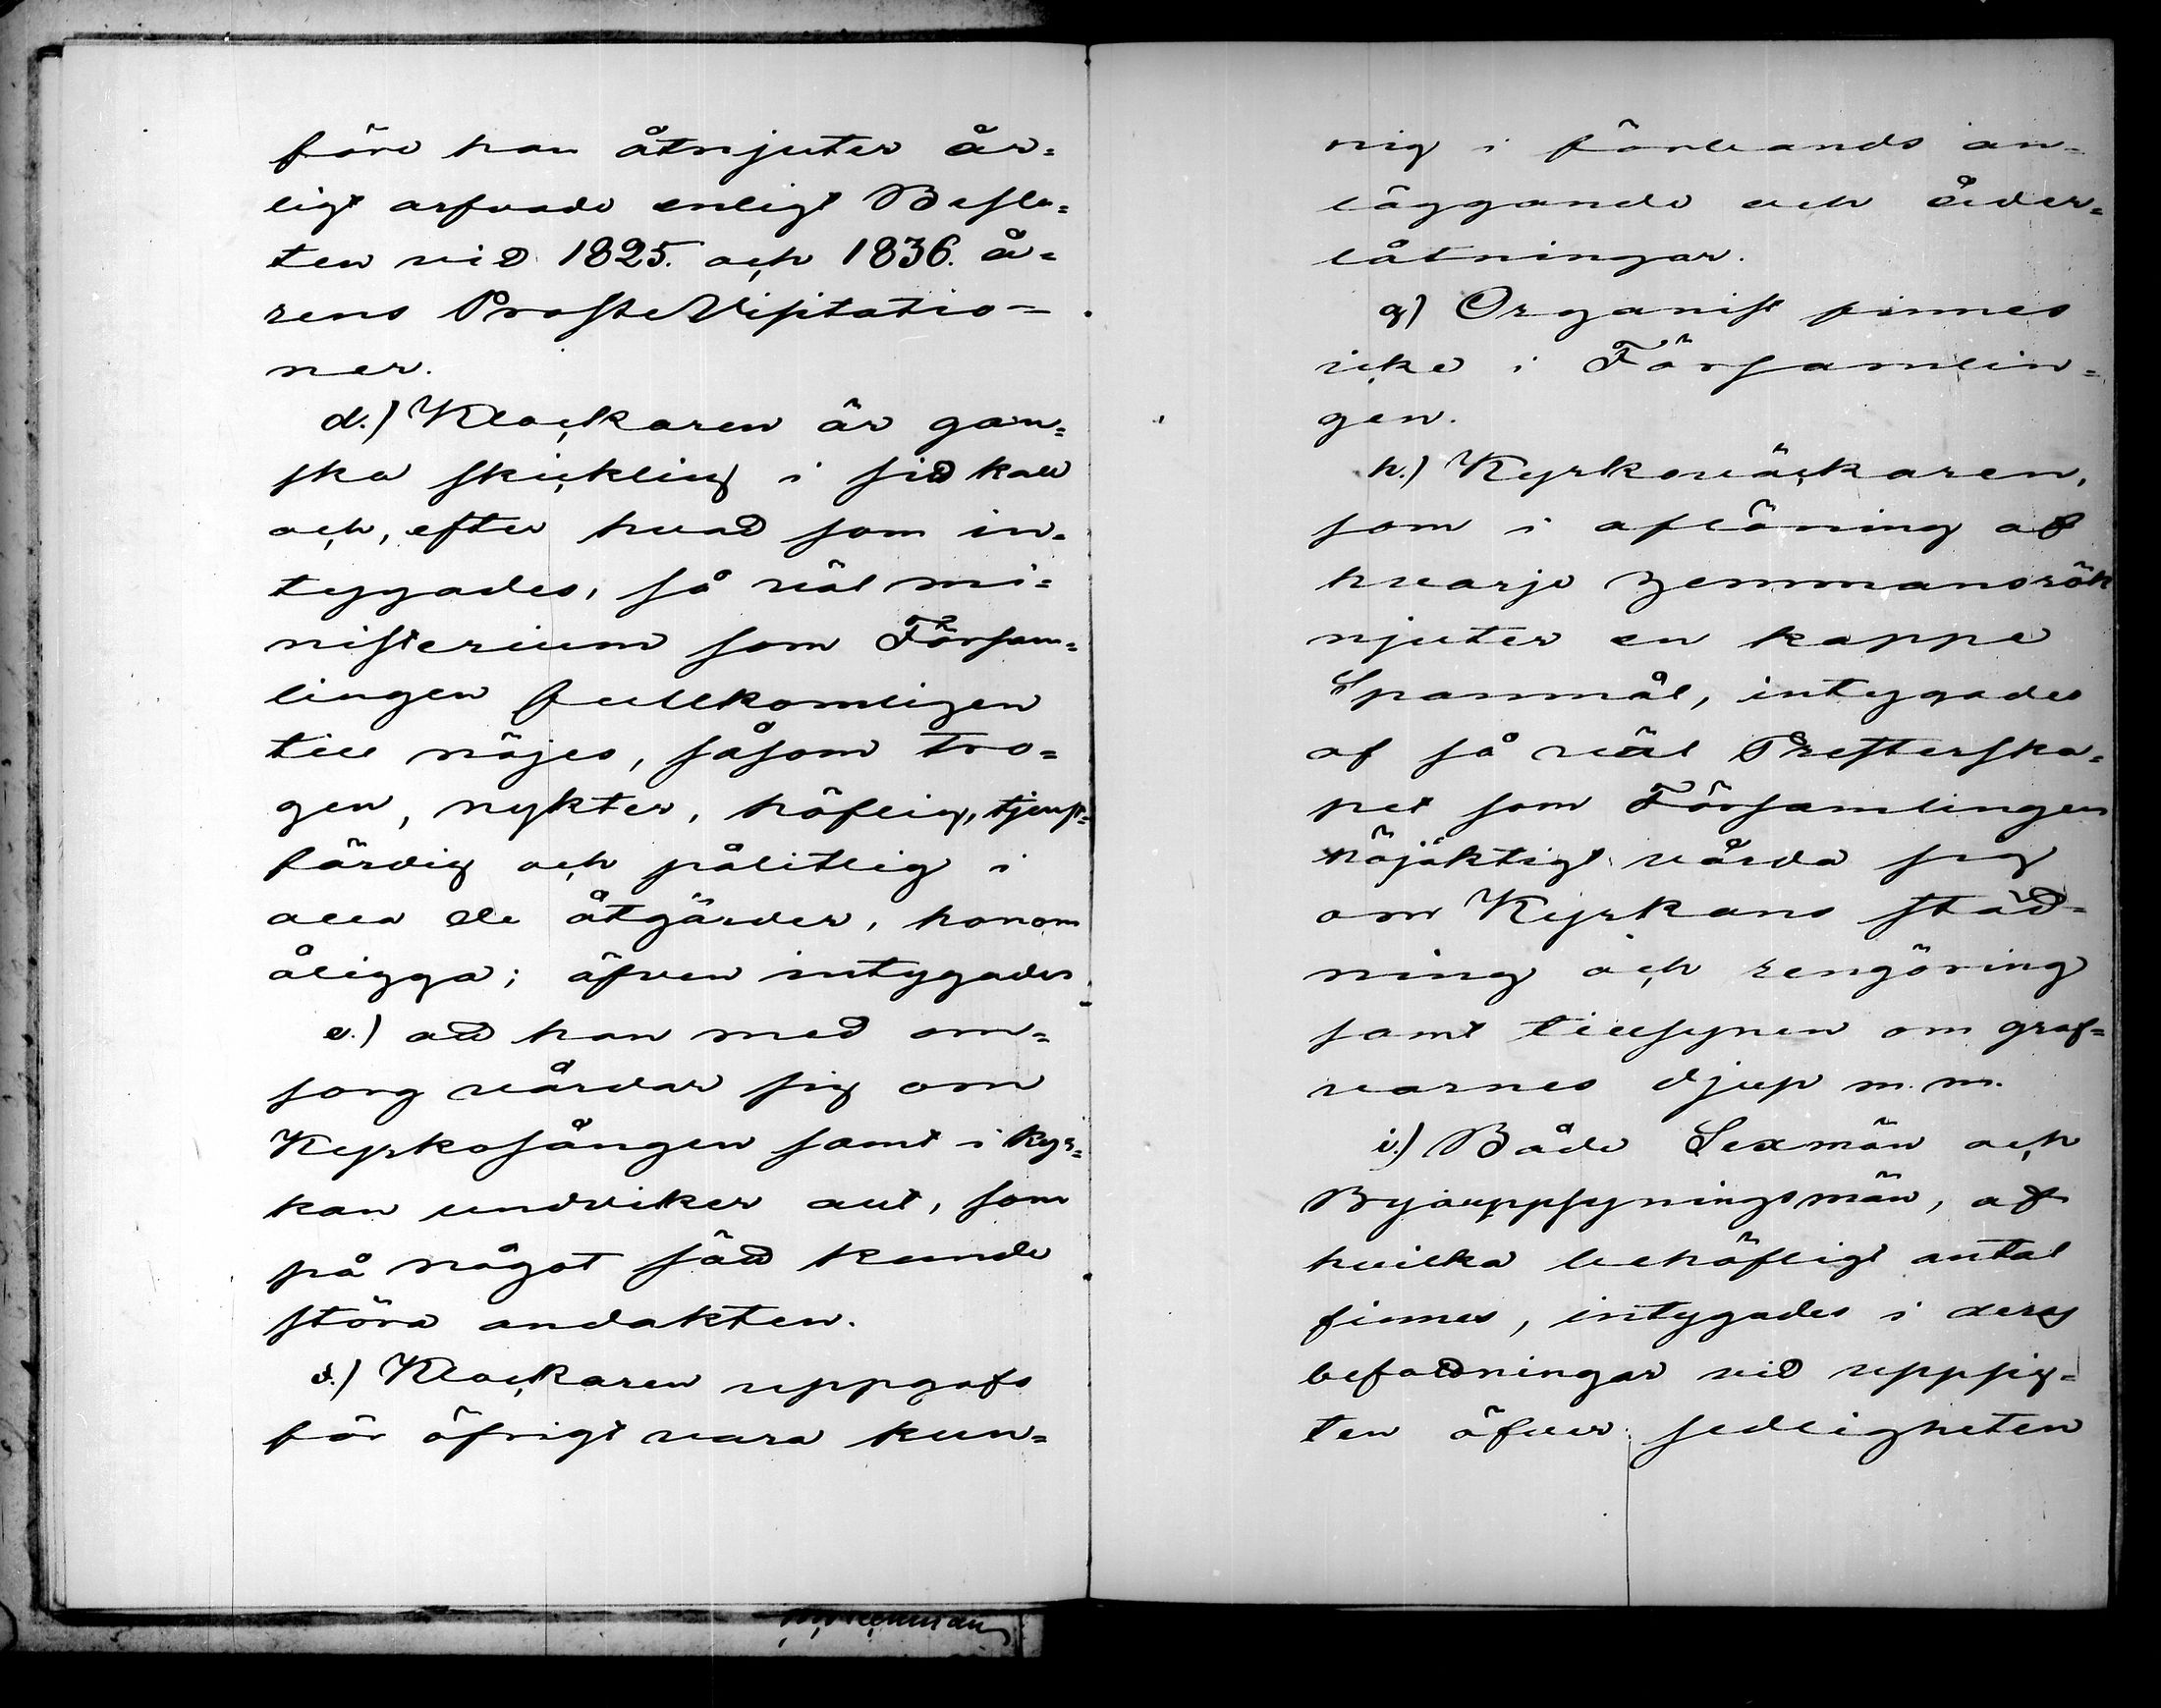 före han åtnjuter år=
ligt arfvode enligt Beslu=
ten vid 1825. och 1836. å=
rens ProsteVisitatio=
ner.
d.) Klockaren är gan=
ska skicklig i sid kall
och, efter hvad som in=
tygades, så väl mi=
nisterium som Försam=
lingen fullkomligen
till nöjes, såsom tro=
gen, nykter, höflig, tjenst=
färdig och pålitlig i
alla de åtgärder, honom
åligga; äfven intygades
e.) add han med om=
sorg vårdar sig om
Kyrkosången samt i kyr=
kan undviker allt, som
på något sädd kunde
störa andakten.
Klockaren uppgafs
för öfrigt vara kun=
nig i förbands an=
läggande och åder=
låtningar.
g) Organist finnes
icke i Församlin=
gen.
h.) Kyrkoväckaren,
som i aflöning af
hvarje Hemmansrök
njuter en kappe
Spanmål, intygades
af så väl Presterska=
pet som Församlingen
nöjaktigt vårda sig
om Kyrkans städ=
ning och rengöring
samt tillsynen om graf=
varnes djup m. m.
i.) Både Sexmän och
Byauppsyningsmän, af
hvilka behöfligt antal
finnes, intygades i deras
befodningar vid uppsig=
ten öfver sedligheten